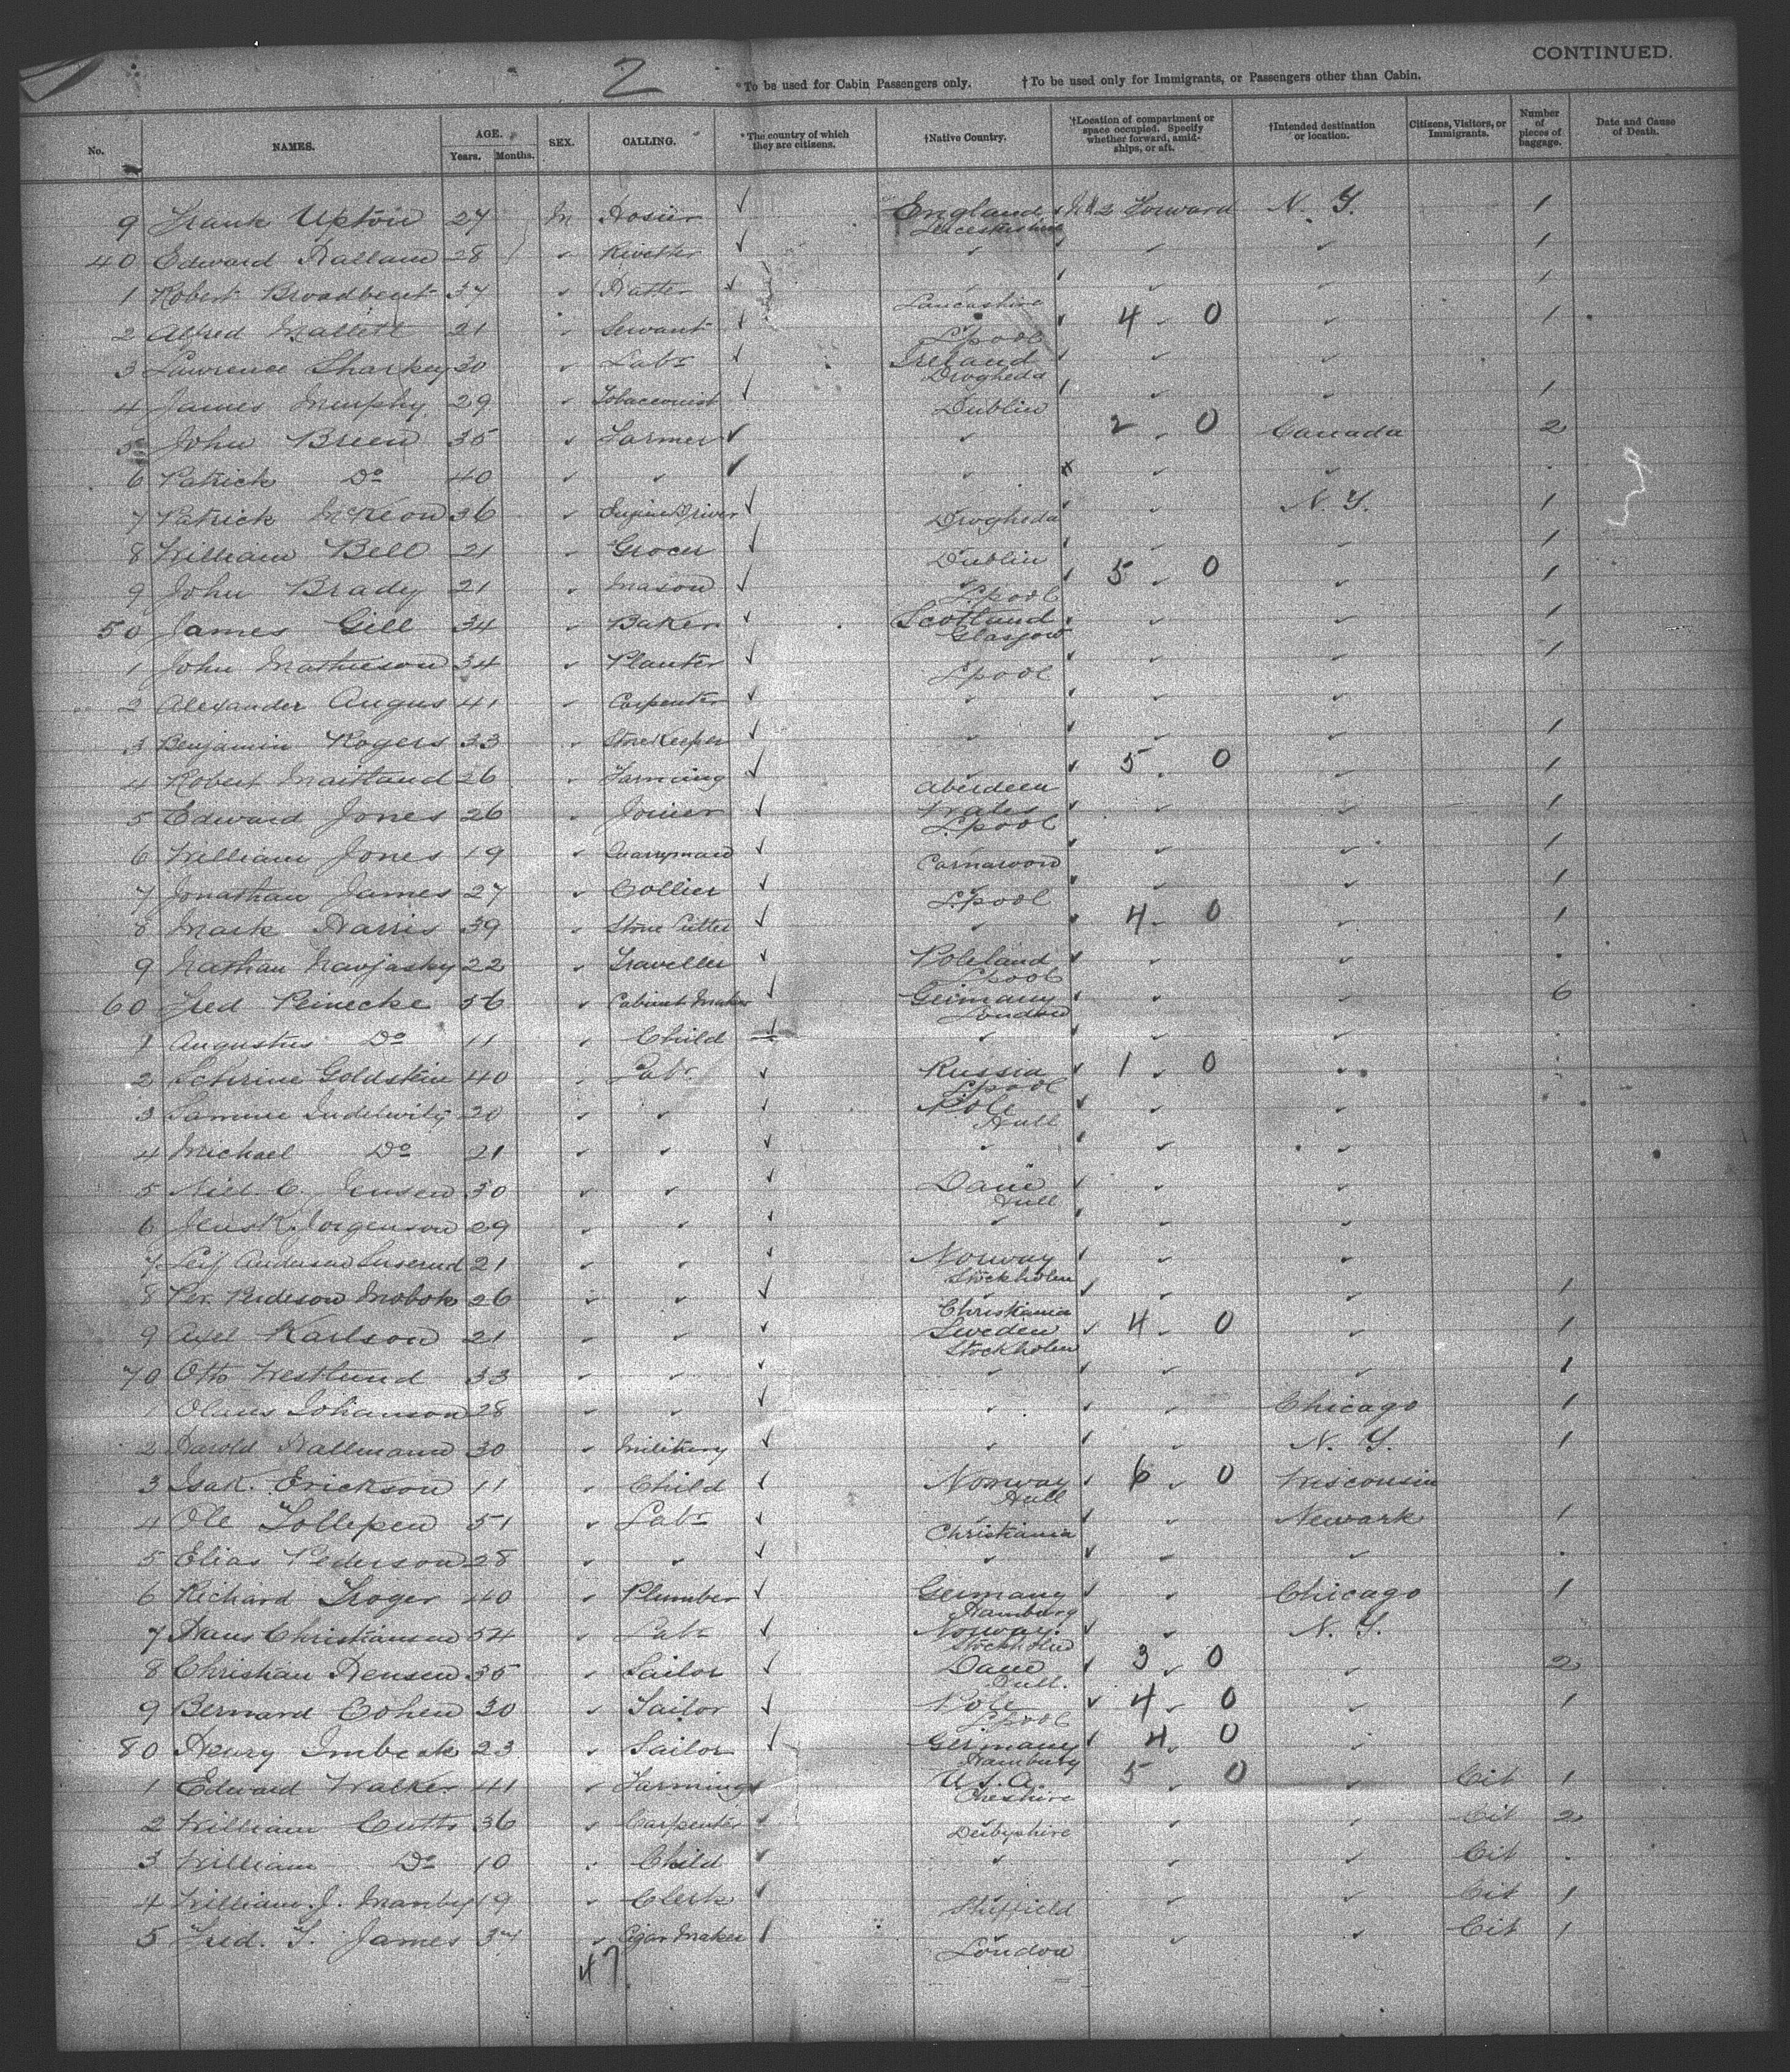 CONTINUED.
2
*To be used for Cabin Passengers only. †To be used only for Immigrants, or Passengers other than Cabin.
No. NAMES. AGE. Years. Months. SEX. CALLING. *The country of which they are citizens. †Native Country. †Location of compartment or space occupied. Specify whether forward, amidships, or aft. †Intended destination or location. Citizens, Visitors, or Immigrants. Number of pieces of baggage. Date and Cause of Death.
9 Frank Upton 27 M Hosier ✓ England Leicestershire No 2 Forward N. Y. 1
40 Edward Hallam 28 " Rivetter ✓ " " " 1
1 Robert Broadbent 37 " Hatter ✓ " Lancashire " " 1
2 Alfred Mallett 21 " Servant ✓ " L'pool 4 " 0 " 1
3 Lawrence Sharkey 30 " Labr ✓ Ireland Drogheda " "
4 James Murphy 29 " Tobacconist ✓ " Dublin " " 1
5 John Breen 35 " Farmer ✓ " 2 " 0 Canada 2
6 Patrick Do 40 " " ✓ " x " "
7 Patrick McKeon 36 " Engine Driver ✓ " Drogheda " N. Y. 1
8 William Bell 21 " Grocer ✓ " Dublin " " 1
9 John Brady 21 " Mason ✓ " L'pool 5 " 0 " 1
50 James Gill 34 " Baker ✓ Scotland Glasgow " " 1
1 John Mathieson 34 " Planter ✓ " L'pool " " 1
2 Alexander Angus 41 " Carpenter ✓ " " "
3 Benjamin Rogers 33 " Storekeeper " " " 1
4 Robert Maitland 26 " Farming ✓ " Aberdeen 5 " 0 " 1
5 Edward Jones 26 " Joiner ✓ Wales L'pool " " 1
6 William Jones 19 " Quarryman ✓ " Carnarvon " " 1
7 Jonathan James 27 " Collier ✓ " L'pool " " 1
8 Mark Harris 39 " Stone Cutter ✓ " 4 " 0 " 1
9 Nathan 22 " Traveller ✓ Poleland L'pool " "
60 Fred Reinecke 56 " Cabinet Maker ✓ Germany London " " 6
1 Augustus Do 11 " Child ✓ " " "
2 Goldstein 40 " Labr ✓ Russia L'pool 1 " 0 "
3 20 " " ✓ Pole Hull " "
4 Michael Do 21 " " ✓ " " "
5 Niel. C. Jensen 30 " " ✓ Dane Hull " "
6 Jens K. Jorgenson 29 " " ✓ " " "
7 Leif Anderson 21 " " ✓ Norway Stockholm " "
8 Per. 26 " " ✓ " Christiania " " 1
9 Axel Karlson 21 " " ✓ Sweden Stockholm 4 " 0 " 1
70 Otto Westlund 33 " " ✓ " " " 1
1 Johanson 28 " " ✓ " " Chicago 1
2 Harold Hallmann 30 " Military ✓ " " N. Y. 1
3 Isak. Erickson 11 " Child ✓ Norway Hull 6 " 0 Wisconsin
4 Ole 51 " Labr ✓ " Christiania " Newark 1
5 Elias Pederson 28 " " ✓ " " "
6 Richard 40 " Plumber ✓ Germany Hamburg " Chicago 1
7 Hans Christiansen 54 " Labr ✓ Norway. Stockholm " N. Y.
8 Christian Hensen 35 " Sailor ✓ Dane Hull. 3 " 0 " 2
9 Bernard Cohen 30 " Tailor ✓ Pole L'pool 4 " 0 " 1
80 Henry Imbeck 23 " Sailor ✓ Germany Hamburg 4 " 0 "
1 Edward Walker 41 " Farming ✓ U.S.A. Cheshire 5 " 0 " Cit 1
2 William Cutts 36 " Carpenter ✓ " Derbyshire " " Cit 2
3 William Do 10 " Child ✓ " " " Cit
4 William. J. Manby 19 " Clerk ✓ " Sheffield " " Cit 1
5 Fred. T. James 37 " Cigar Maker " London " " Cit 1
47